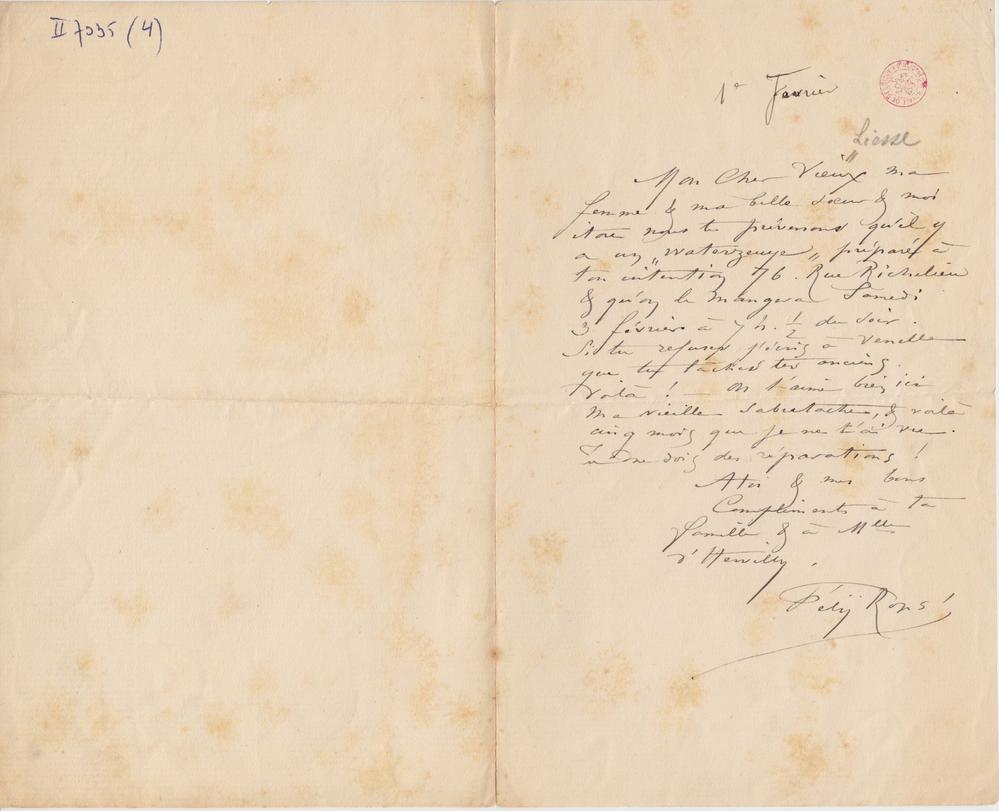 II 7035 (4)
1er Février
Liesse
Mon Cher Vieux ma
femme & ma belle soeur & moi
itou nous te prévenons qu'il y
a un „waterzouye„ préparé à
ton intention 76. Rue Richelieu
& qu'on le mangera Samedi
3 février à 7 h. ½ du soir.
Si tu refuses j'écris à Venelle
que tu lâches tes anciens.
Voilà ! — On t'aime bien ici
ma vieille Sabretache, & voilà
cinq mois que je ne t'ai vu.
Tu me dois des réparations !
A toi & mes bons
Compliments à ta
famille & à Mlle
d'Hervilly.
Fély Rops